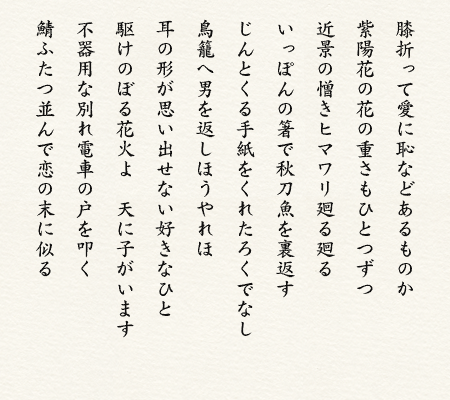 膝折って愛に恥などあるものか
紫陽花の花の重さもひとつずつ
近景の憎きヒマワリ廻る廻る
いっぽんの箸で秋刀魚を裏返す
じんとくる手紙をくれたろくでなし
鳥籠へ男を返しほうやれほ
耳の形が思い出せない好きなひと
駆けのぼる花火よ　天に子がいます
不器用な別れ電車の戸を叩く
鯖ふたつ並んで恋の末に似る